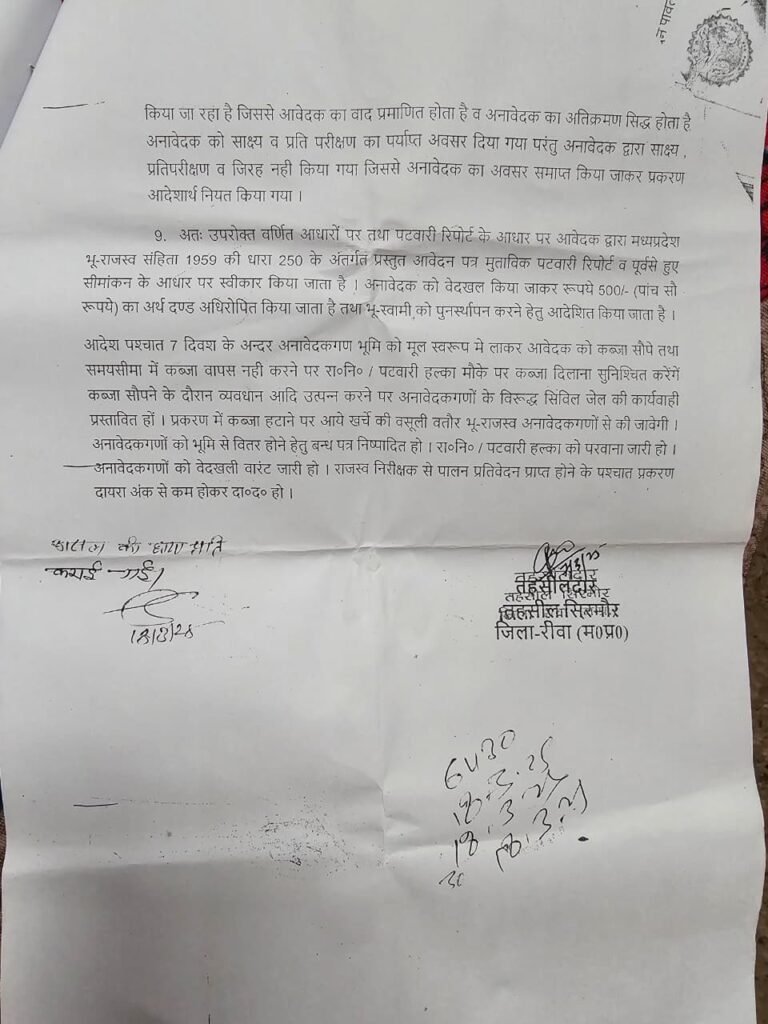 किया जा रहा है जिससे आवेदक का वाद प्रमाणित होता है व अनावेदक का अतिक्रमण सिद्ध होता है
अनावेदक को साक्ष्य व प्रति परीक्षण का पर्याप्त अवसर दिया गया परंतु अनावेदक द्वारा साक्ष्य ,
प्रतिपरीक्षण व जिरह नही किया गया जिससे अनावेदक का अवसर समाप्त किया जाकर प्रकरण
आदेशार्थ नियत किया गया ।
9. अतः उपरोक्त वर्णित आधारों पर तथा पटवारी रिपोर्ट के आधार पर आवेदक द्वारा मध्यप्रदेश
भू-राजस्व संहिता 1959 की धारा 250 के अंतर्गत प्रस्तुत आवेदन पत्र मुताविक पटवारी रिपोर्ट व पूर्वसे हुए
सीमांकन के आधार पर स्वीकार किया जाता है । अनावेदक को वेदखल किया जाकर रूपये 500/- (पांच सौ
रूपये) का अर्थ दण्ड अधिरोपित किया जाता है तथा भू-स्वामी को पुनर्स्थापन करने हेतु आदेशित किया जाता है ।
आदेश पश्चात 7 दिवश के अन्दर अनावेदकगण भूमि को मूल स्वरूप मे लाकर आवेदक को कब्जा सौपे तथा
समयसीमा में कब्जा वापस नही करने पर रा०नि० / पटवारी हल्का मौके पर कब्जा दिलाना सुनिश्चित करेंगें
कब्जा सौपने के दौरान व्यवधान आदि उत्पन्न करने पर अनावेदकगणों के विरूद्ध सिविल जेल की कार्यवाही
प्रस्तावित हों । प्रकरण में कब्जा हटाने पर आये खर्चे की वसूली वतौर भू-राजस्व अनावेदकगणों से की जावेगी ।
अनावेदकगणों को भूमि से वितर होने हेतु बन्ध पत्र निष्पादित हो । रा०नि० / पटवारी हल्का को परवाना जारी हो ।
अनावेदकगणों को वेदखली वारंट जारी हो । राजस्व निरीक्षक से पालन प्रतिवेदन प्राप्त होने के पश्चात प्रकरण
दायरा अंक से कम होकर दा०द० हो ।
की छाया प्रति
कराई गई।
तहसीलदार
तहसील सिरमौर
जिला-रीवा (म0प्र0)